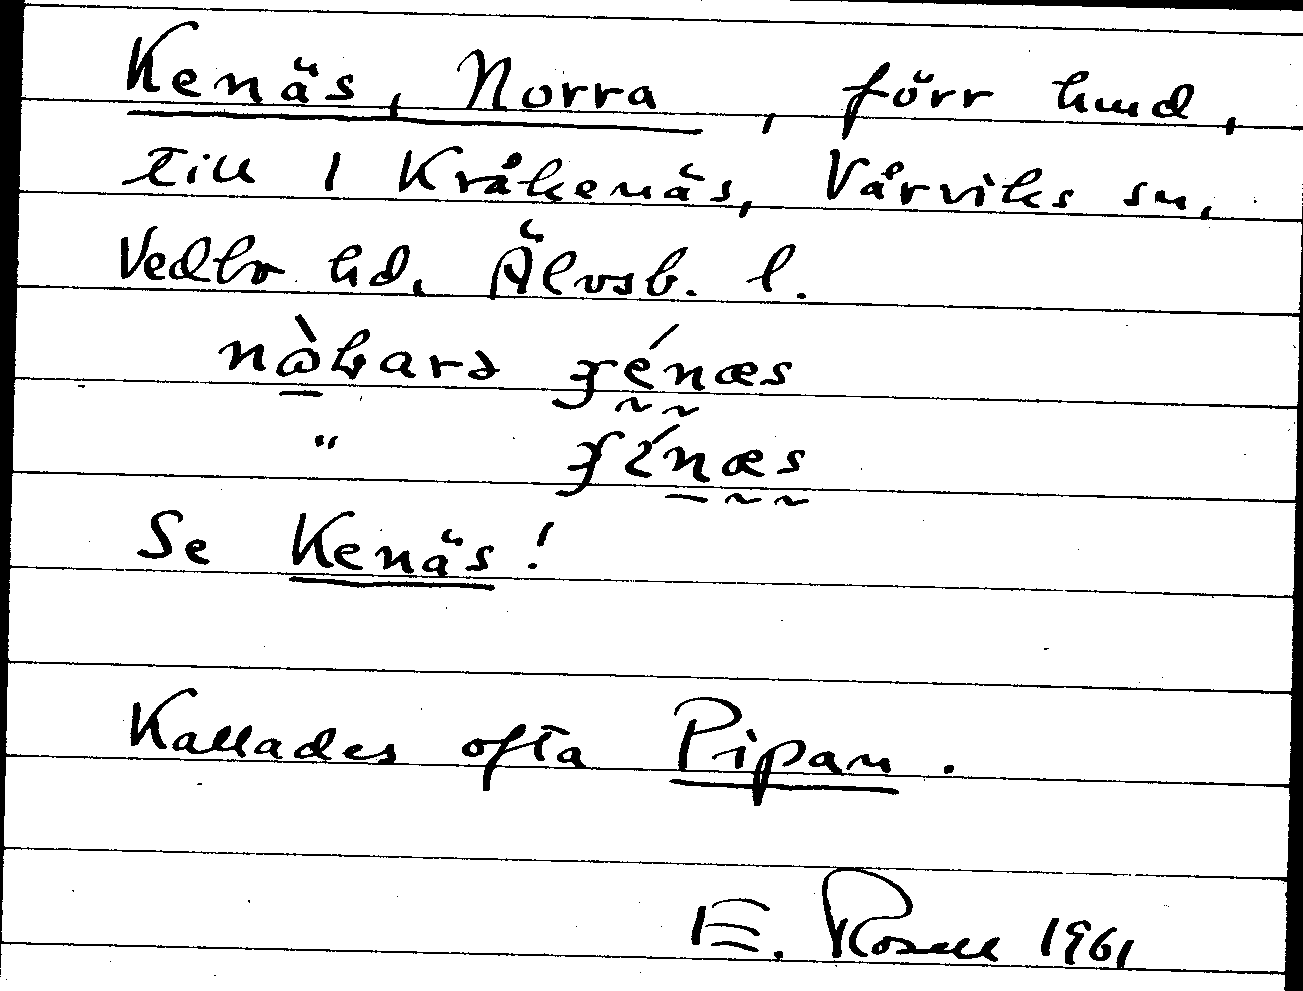 Kenäs, Norra, förr hmd,
till 1 Kråkenäs, Vårviks sn,
Vedbo hd, Älvsb. l.
Se Kenäs!
Kallades ofta Pipan.
E. Rosell 1961